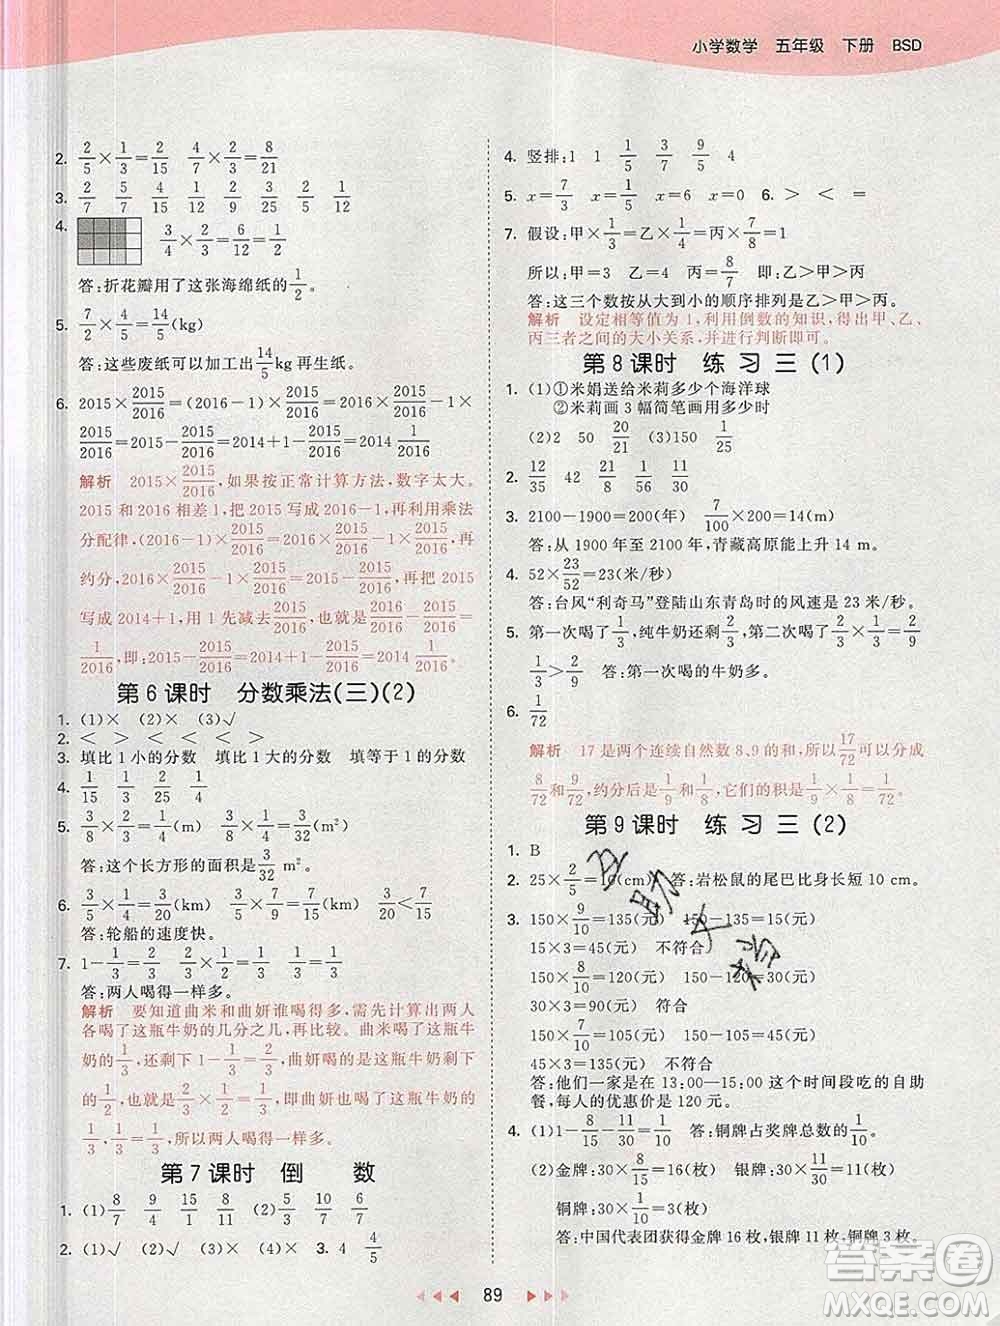 小学数学 五年级 下册 BSD
2. 2/5×1/3=2/15 4/7×2/3=8/21
3. 2/7 5/7 4/15 1/2 2/9 1/25 5/18 1/12
4. 3/4×2/3=6/12=1/2
答:折花瓣用了这张海绵纸的1/2。
5. 7/2×4/5=14/5(kg)
答:这些废纸可以加工出14/5kg再生纸。
6. 2015×2015/2016=(2016-1)×2015/2016=2016×2015/2016-1×
2015/2016=2015-2015/2016=2014+1-2015/2016=2014 1/2016
解析 2015×2015/2016,如果按正常计算方法,数字太大。
2015和2016相差1,把2015写成2016-1,再利用乘法
分配律,(2016-1)×2015/2016=2016×2015/2016-1×2015/2016,再
约分,2016×2015/2016-1×2015/2016=2015-2015/2016,再把2015
写成2014+1,用1先减去2015/2016,就是1-2015/2016=
1/2016,即:2015-2015/2016=2014 1/2016。
第6课时 分数乘法(三)(2)
1. (1)× (2)× (3)√
2. < > < >
3. 填比1小的分数 填比1大的分数 填等于1的分数
4. 1/15 1/3 2/25 1/4
5. 3/8×2/3=1/4(m) 3/8×1/4=3/32(m²)
答:这个长方形的面积是3/32 m²。
6. 3/10×1/2=3/20(km) 1/5×3/4=3/20(km) 3/20=3/20
答:轮船的速度快。
7. 1-1/3=2/3 2/3×1/2=1/3 1/3=1/3
答:两人喝得一样多。
解析 要知道曲米和曲妍谁喝得多,需先计算出两人
各喝了这瓶牛奶的几分之几,再比较。曲米喝了这瓶牛
奶的1/3,还剩下1-1/3=2/3,曲妍喝的就是这瓶牛奶
的2/3×1/2=1/3,即曲妍也喝了这瓶牛奶的1/3,1/3=
1/3,所以两人喝得一样多。
第7课时 倒 数
1. (1)8/7 9/4 15/8 11/5 (2)1/8 7/3 10/7 6/7
2. (1)√ (2)√ (3)× (4)× 3. 4 4/5
4. 竖排:1 1 1/5 9/5 4
5. x=7/3 x=1/5 x=6 x=0 6. > < =
7. 假设:甲×1/3=乙×1/4=丙×7/8=1
所以:甲=3 乙=4 丙=8/7 即:乙>甲>丙
答:这三个数按从大到小的顺序排列是乙>甲>丙。
解析 设定相等值为1,利用倒数的知识,得出甲、乙、
丙三者之间的大小关系,并进行判断即可。
第8课时 练习三(1)
1. (1)①米娟送给米莉多少个海洋球
②米莉画3幅简笔画用多少时
(2)2 50 20/21 (3)150 1/25
2. 12/35 42 21/8 1/6 11/51
3. 2100-1900=200(年) 7/100×200=14(m)
答:从1900年至2100年,青藏高原能上升14 m。
4. 52×23/52=23(米/秒)
答:台风“利奇马”登陆山东青岛时的风速是23米/秒。
5. 第一次喝了1/3,纯牛奶还剩2/3,第二次喝了2/3×1/3=2/9
1/3>2/9 答:第一次喝的牛奶多。
6. 1/72
解析 17是两个连续自然数8、9的和,所以17/72可以分成
8/72和9/72,约分后是1/9和1/8,它们的积是1/9×1/8=1/72。
第9课时 练习三(2)
1. B
2. 25×2/5=10(cm) 答:岩松鼠的尾巴比身长短10 cm。
3. 150×9/10=135(元) 150-135=15(元)
15×3=45(元) 不符合
150×8/10=120(元) 150-120=30(元)
30×3=90(元) 符合
150×7/10=105(元) 150-105=45(元)
45×3=135(元) 不符合
答:他们一家是在13:00—15:00这个时间段吃的自助
餐,每人的优惠价是120元。
4. (1)1-8/15-11/30=1/10 答:铜牌占奖牌总数的1/10。
(2)金牌:30×8/15=16(枚) 银牌:30×11/30=11(枚)
铜牌:30×1/10=3(枚)
答:中国代表团获得金牌16枚,银牌11枚,铜牌3枚。
89
答案圈
MXQE.COM